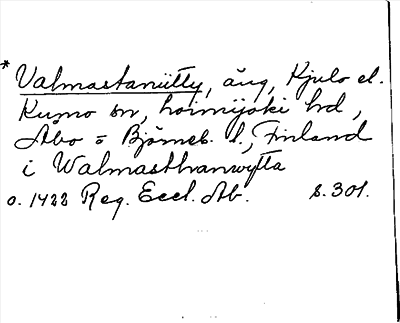 * Valmastaniitty, äng, Kjulo el.
Kumo sn, hoimijoki hd,
Åbo o Björneb. l., Finland
i Walmasthanwytta
o. 1433 Reg. Eccl. Ab. s. 301.